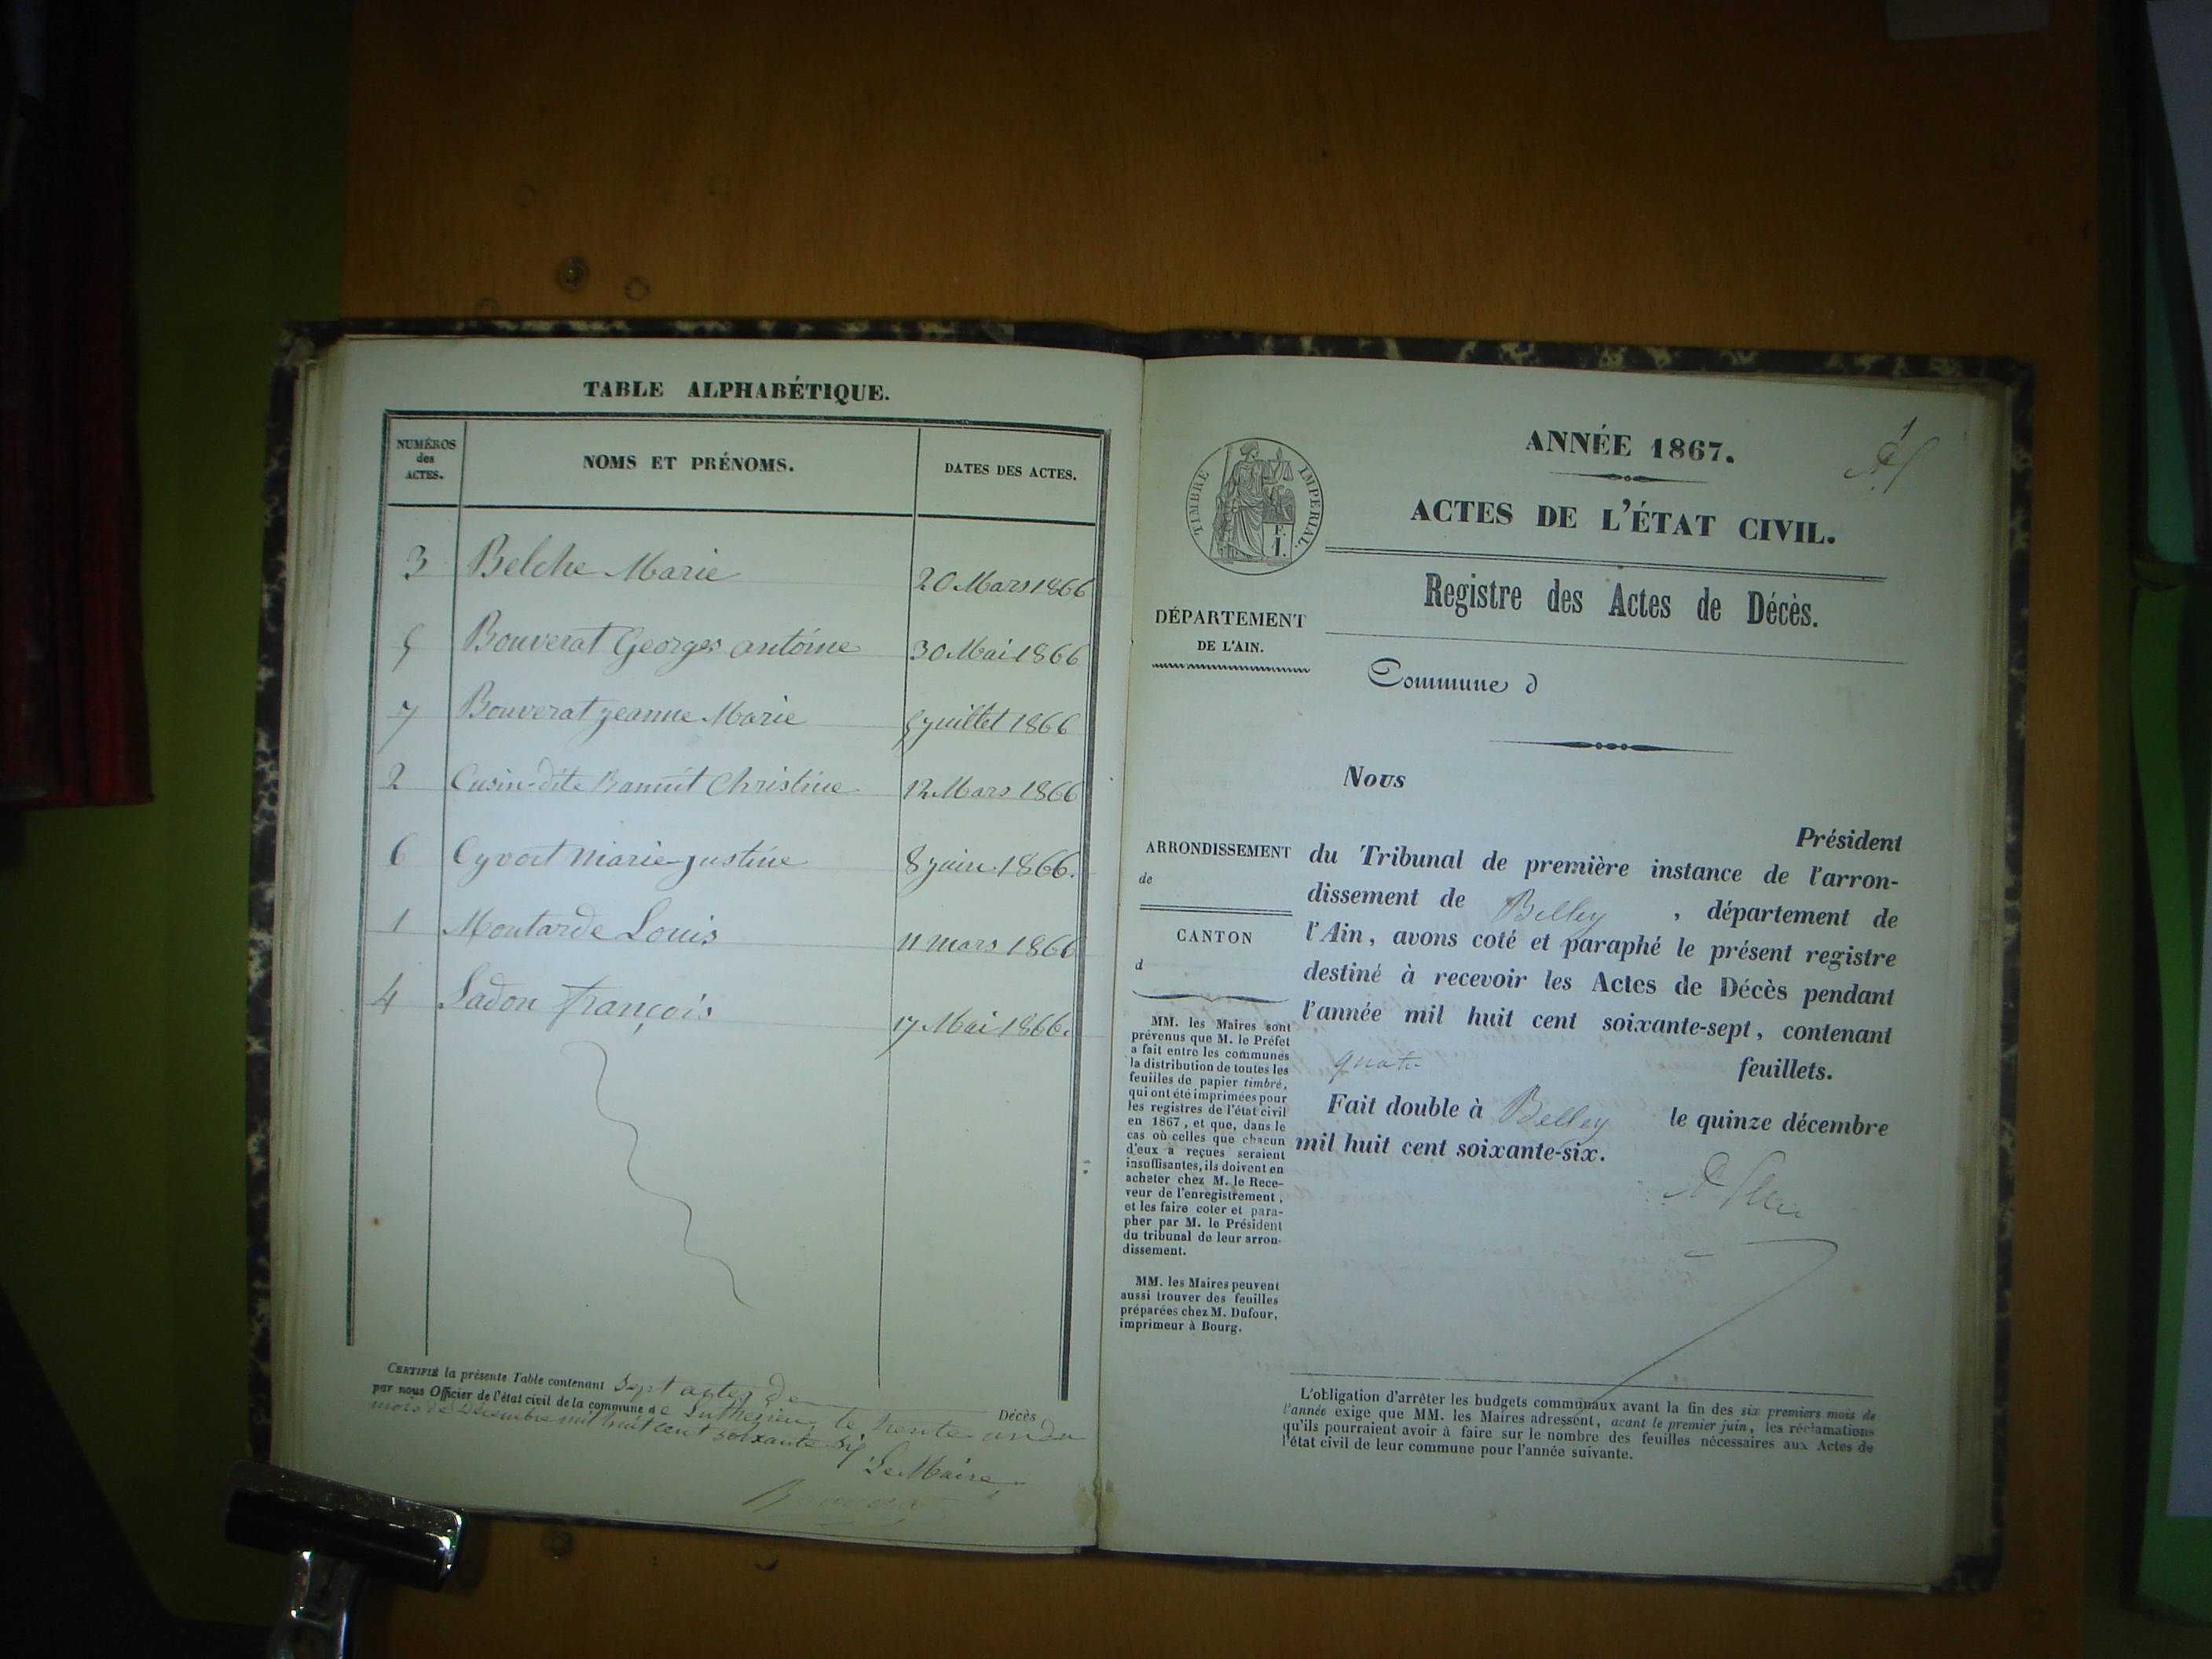 TABLE ALPHABÉTIQUE.
NUMÉROS
des
ACTES.
NOMS ET PRÉNOMS.
DATES DES ACTES.
3 Belche Marie 20 Mars 1866
5 Bouverat Georges antoine 30 Mai 1866
7 Bouverat jeanne Marie 5 juillet 1866
2 Cusin dite Christine 12 Mars 1866
6 Cyvoct Marie justine 8 juin 1866.
1 Moutarde Louis 11 mars 1866
4 Sadon françois 17 Mai 1866.
CERTIFIÉ la présente Table contenant Sept actes de Décès
par nous Officier de l'état civil de la commune de le trente un du
mois de Décembre mil huit cent soixante six
Le Maire
1
ANNÉE 1867.
ACTES DE L'ÉTAT CIVIL.
TIMBRE IMPERIAL.
Registre des Actes de Décès.
DÉPARTEMENT
DE L'AIN.
Commune d
Nous
Président
ARRONDISSEMENT
de
CANTON
d
du Tribunal de première instance de l'arron-
dissement de Belley , département de
l'Ain, avons coté et paraphé le présent registre
destiné à recevoir les Actes de Décès pendant
l'année mil huit cent soixante-sept, contenant
quatre feuillets.
Fait double à Belley le quinze décembre
mil huit cent soixante-six.
MM. les Maires sont
prévenus que M. le Préfet
a fait entre les communes
la distribution de toutes les
feuilles de papier timbré,
qui ont été imprimées pour
les registres de l'état civil
en 1867, et que, dans le
cas où celles que chacun
d'eux a reçues seraient
insuffisantes, ils doivent en
acheter chez M. le Rece-
veur de l'enregistrement,
et les faire coter et para-
pher par M. le Président
du tribunal de leur arron-
dissement.
MM. les Maires peuvent
aussi trouver des feuilles
préparées chez M. Dufour,
imprimeur à Bourg.
L'obligation d'arrêter les budgets communaux avant la fin des six premiers mois de
l'année exige que MM. les Maires adressent, avant le premier juin, les réclamations
qu'ils pourraient avoir à faire sur le nombre des feuilles nécessaires aux Actes de
l'état civil de leur commune pour l'année suivante.